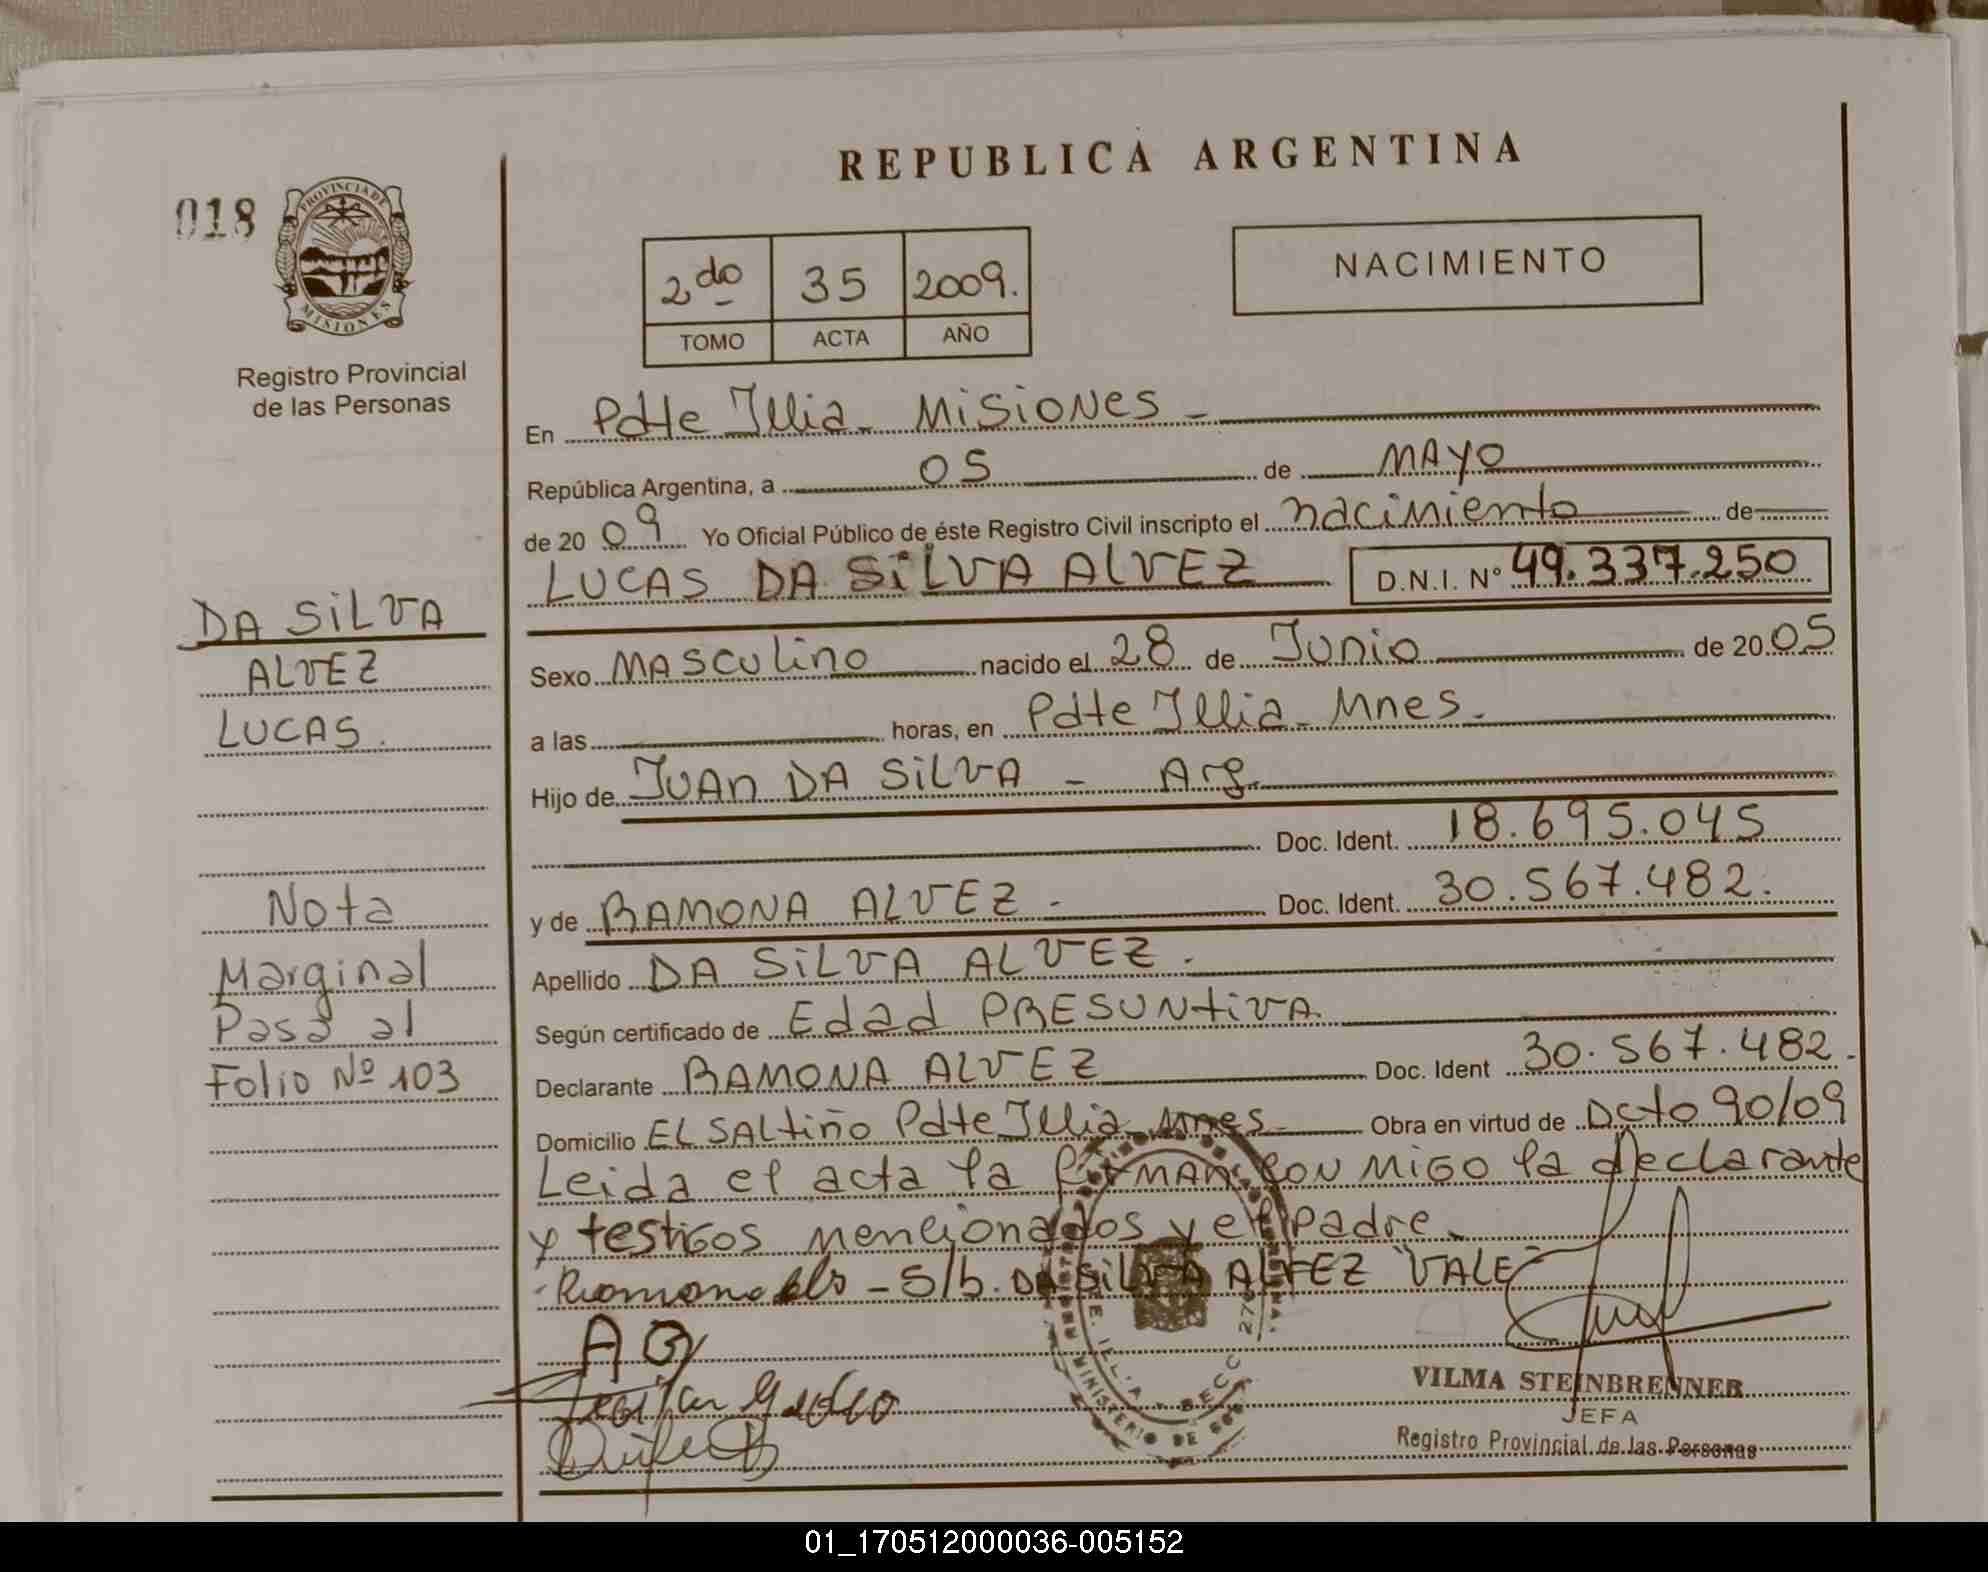 REPUBLICA ARGENTINA
018
PROVINCIA DE
MISIONES
Registro Provincial
de las Personas
2do 35 2009.
TOMO ACTA AÑO
NACIMIENTO
En Pdte Illia - MISIONES -
República Argentina, a 05 de MAYO
de 2009 Yo Oficial Público de éste Registro Civil inscripto el nacimiento de
LUCAS DA SILVA ALVEZ D.N.I. N° 49.337.250
DA SILVA
ALVEZ
LUCAS.
Sexo MASCULINO nacido el 28 de JUNIO de 2005
a las horas, en Pdte Illia - Mnes.
Hijo de JUAN DA SILVA - Arg.
Doc. Ident. 18.695.045
y de RAMONA ALVEZ - Doc. Ident. 30.567.482.
Apellido DA SILVA ALVEZ.
Según certificado de Edad PRESUNTIVA
Declarante RAMONA ALVEZ Doc. Ident 30.567.482.
Domicilio EL SALTIÑO Pdte Illia Mnes Obra en virtud de Dcto 90/09
Leida el acta la FIRMAN CON MIGO la declarante
y testigos mencionados y el padre.
S/b. DA SILVA ALVEZ "VALE"
Nota
Marginal
Pasa al
Folio Nº 103
VILMA STEINBRENNER
JEFA
Registro Provincial de las Personas
MINISTERIO DE
01_170512000036-005152